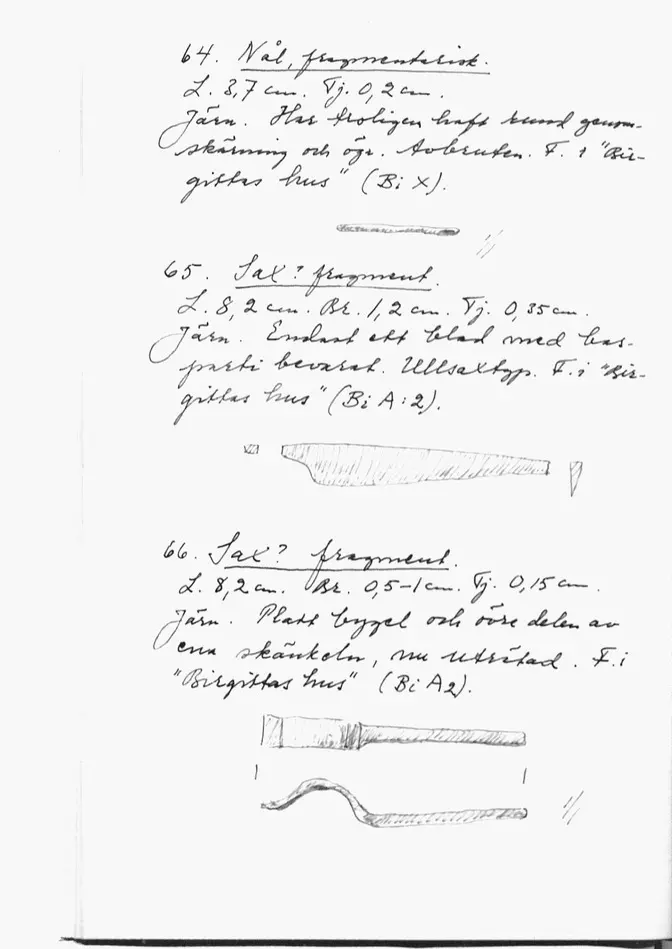 64. Nål, fragmentarisk.
L. 3,7 cm. Tj. 0,2 cm.
Järn. Har troligen haft rund genom-
skärning och ögr. Avbruten. F. i "Bir-
gittas hus" (Bi X).
1/1
65. Sax? fragment.
L. 8,2 cm. Br. 1,2 cm. Tj. 0,35 cm.
Järn. Endast ett blad med bas-
parti bevarat. Ullsaxtyp. F. i "Bir-
gittas hus" (Bi A:2).
66. Sax? fragment.
L. 8,2 cm. Br. 0,5-1 cm. Tj. 0,15 cm.
Järn. Platt bygel och övre delen av
ena skänkeln, nu uträtad. F. i
"Birgittas hus" (Bi A2).
1/1